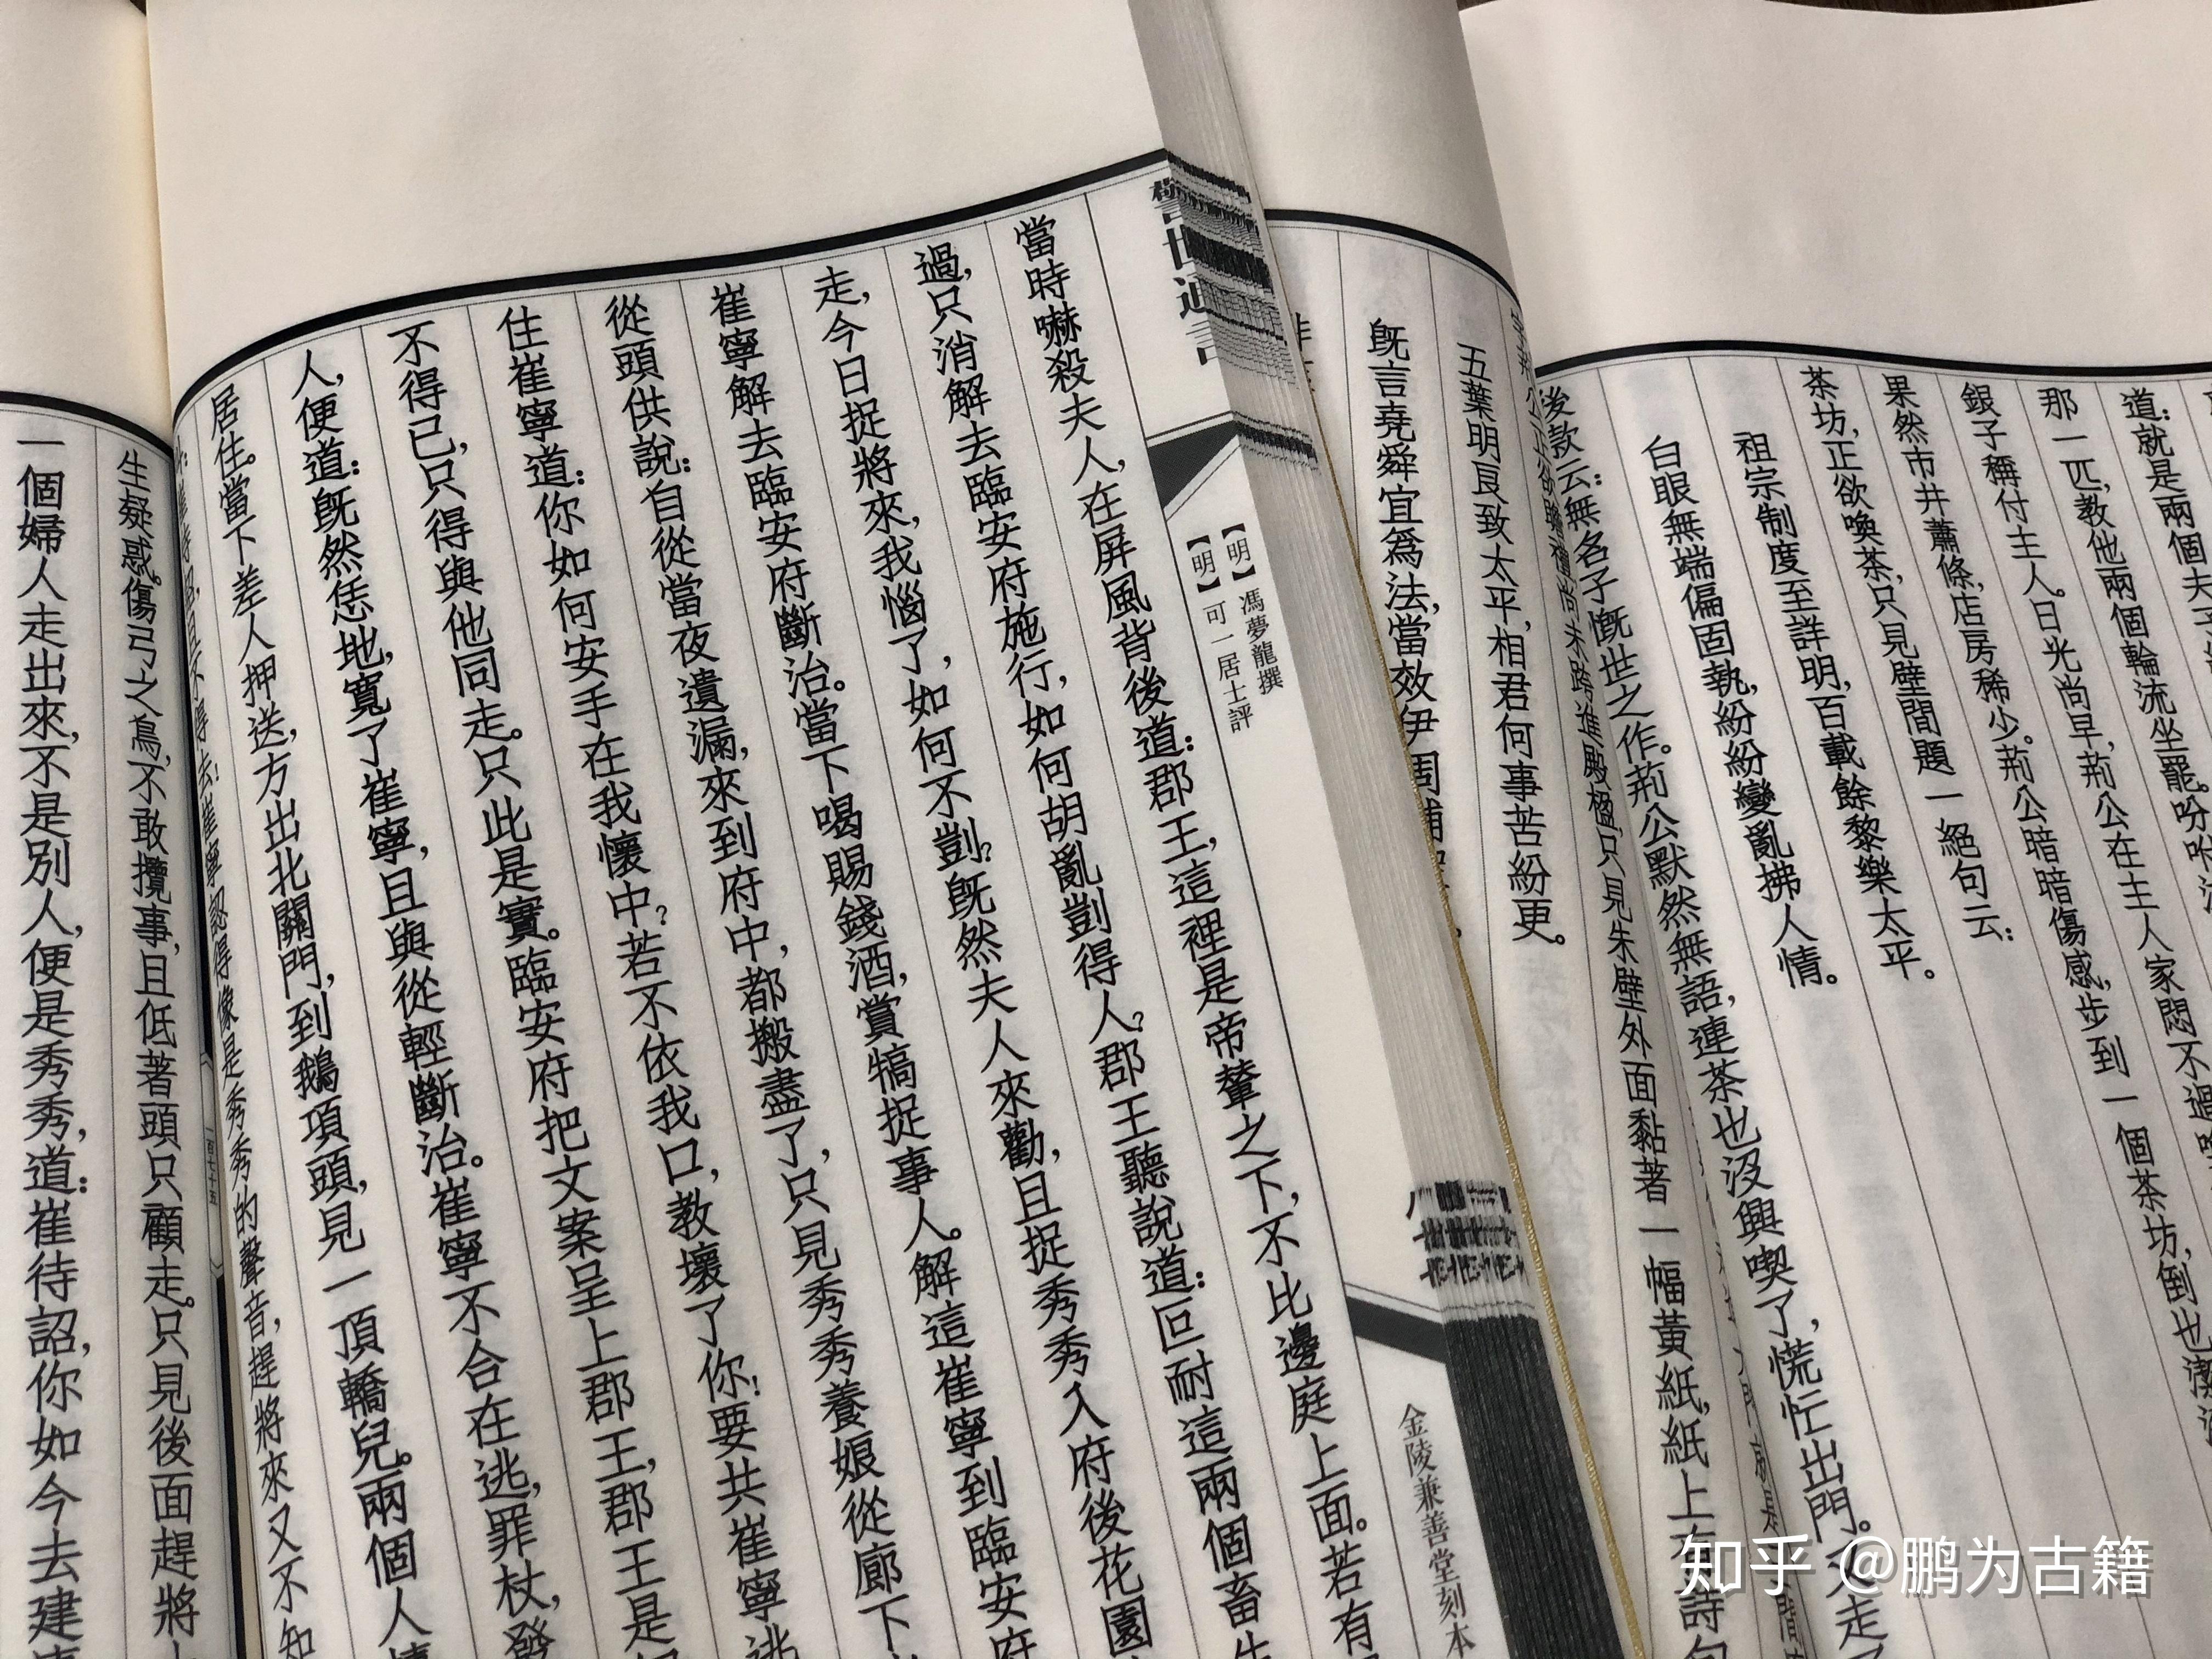 警世通言
【明】馮夢龍撰
【明】可一居士評
金陵兼善堂刻本
當時嚇殺夫人,在屏風背後道:郡王,這裡是帝輦之下,不比邊庭上面。若有
過,只消解去臨安府施行,如何胡亂剴得人?郡王聽說道:叵耐這兩個畜生
走,今日捉將來,我惱了,如何不剴?既然夫人來勸,且捉秀秀入府後花園
崔寧解去臨安府斷治。當下喝賜錢酒,賞犒捉事人。解這崔寧到臨安府
從頭供說:自從當夜遺漏,來到府中,都搬盡了,只見秀秀養娘從廊下
住崔寧道:你如何安手在我懷中?若不依我口,教壞了你!要共崔寧逃
不得已,只得與他同走。只此是實。臨安府把文案呈上郡王,郡王是
人,便道:既然恁地,寬了崔寧,且與從輕斷治。崔寧不合在逃,罪杖,發
居住。當下差人押送,方出北關門,到鵝項頭,見一頂轎兒。兩個人
不得去!崔寧認得像是秀秀的聲音,趕將來又不知
一百七十五
生疑惑。傷弓之鳥,不敢攬事,且低著頭只顧走。只見後面趕將
一個婦人走出來,不是別人,便是秀秀,道:崔待詔,你如今去建
道:就是兩個夫子
那一匹,教他兩個輪流坐罷。吩咐
銀子稱付主人。日光尚早,荊公在主人家悶不過
果然市井蕭條,店房稀少。荊公暗暗傷感,步到一個茶坊,倒也潔
茶坊,正欲喚茶,只見壁間題一絕句云:
祖宗制度至詳明,百載餘黎樂太平。
白眼無端偏固執,紛紛變亂拂人情。
後款云:無名子慨世之作。荊公默然無語,連茶也沒興喫了,慌忙出門。又走
進殿楹,只見朱壁外面黏著一幅黃紙,紙上有詩句
五葉明良致太平,相君何事苦紛更。
既言堯舜宜為法,當效伊周輔
知乎 @鹏为古籍